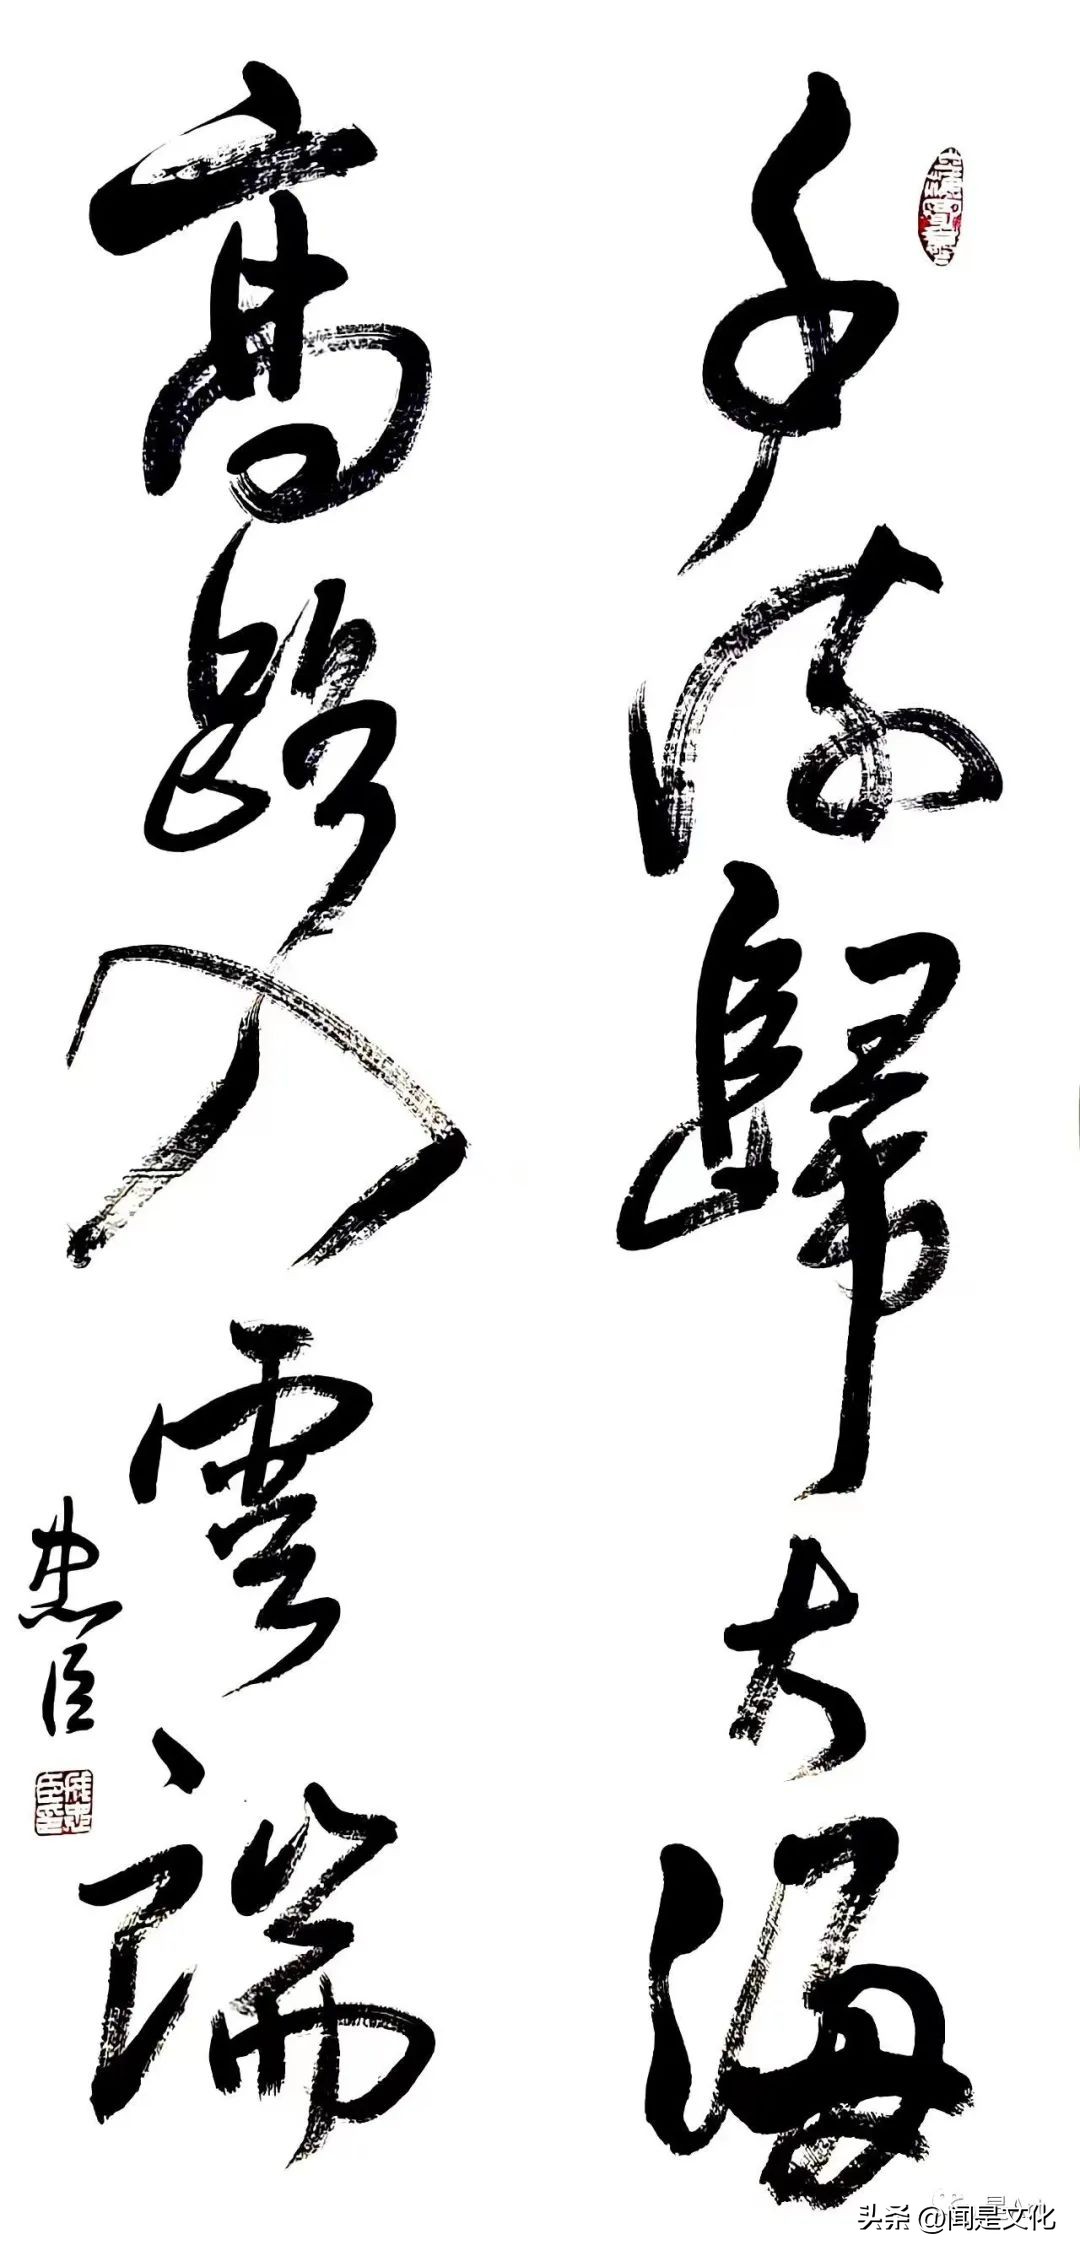 千流歸大海
高路入雲端
忠臣
头条 @闻是文化